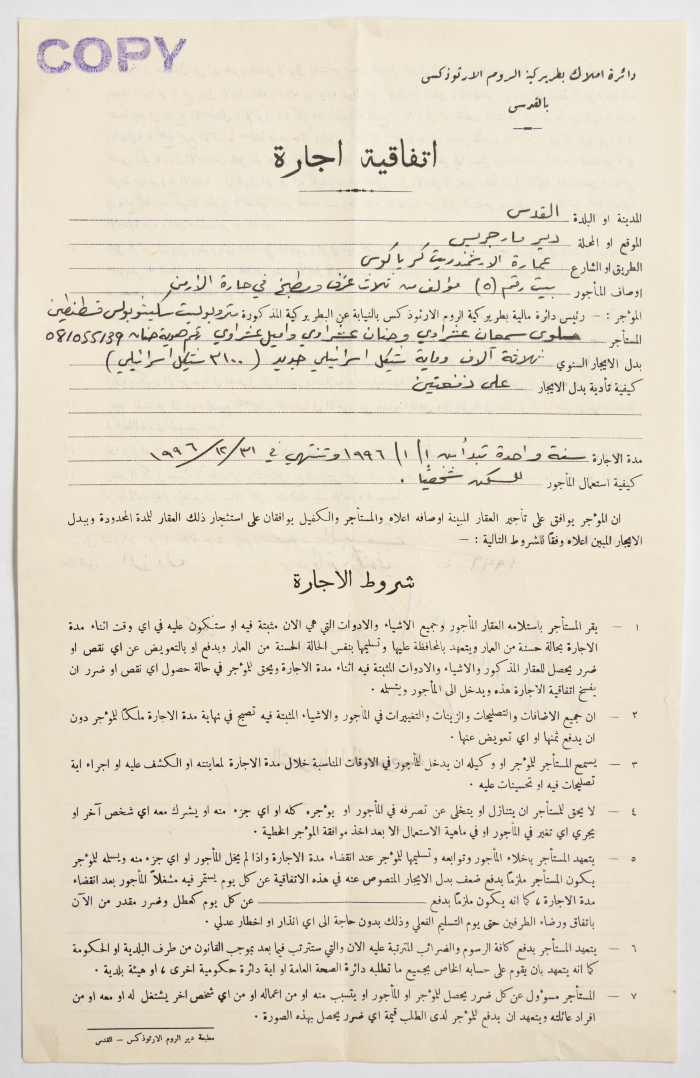 COPY
دائرة املاك بطريركية الروم الارثوذكس
بالقدس
اتفاقية اجارة
المدينة او البلدة القدس
الموقع او المحلة دير مار جريس
الطريق او الشارع عمارة الارشمندريت كرياكوس
اوصاف المأجور بيت رقم (٥) مؤلف من ثلاث غرف ومطبخ في حارة الارمن
المؤجر : — رئيس دائرة مالية بطريركية الروم الارثوذكس بالنيابة عن البطريركية المذكورة متروبوليت قسطنطين
المستأجر سلوى سمعان عشراوي وحنان عشراوي واميل عشراوي رقم هوية حنان 081055139
بدل الايجار السنوي ثلاثة آلاف وماية شيكل اسرائيلي جديد (٣١٠٠ شيكل اسرائيلي)
كيفية تأدية بدل الايجار على دفعتين
مدة الاجارة سنة واحدة تبدأ من ١/١/١٩٩٦ وتنتهي في ٣١/١٢/١٩٩٦
كيفية استعمال المأجور للسكن شخصياً .
ان المؤجر يوافق على تأجير العقار المبينة اوصافه اعلاه والمستأجر والكفيل يوافقان على استئجار ذلك العقار للمدة المحدودة وببدل
الايجار المبين اعلاه وفقا للشروط التالية : —
شروط الاجارة
١ — يقر المستأجر باستلامه العقار المأجور وجميع الاشياء والادوات التي هي الان مثبتة فيه او ستكون عليه في اي وقت اثناء مدة
الاجارة بحالة حسنة من العمار ويتعهد بالمحافظة عليها وتسليمها بنفس الحالة الحسنة من العمار ويدفع او بالتعويض عن اي نقص او
ضرر يحصل للعقار المذكور والاشياء والادوات المثبتة فيه اثناء مدة الاجارة ويحق للمؤجر في حالة حصول اي نقص او ضرر ان
يفسخ اتفاقية الاجارة هذه ويدخل الى المأجور ويتسلمه .
٢ — ان جميع الاضافات والتصليحات والزينات والتغييرات في المأجور والاشياء المثبتة فيه تصبح في نهاية مدة الاجارة ملكاً للمؤجر دون
ان يدفع ثمنها او اي تعويض عنها .
٣ — يسمح المستأجر للمؤجر او وكيله ان يدخل للمأجور في الاوقات المناسبة خلال مدة الاجارة لمعاينته او الكشف عليه او اجراء اية
تصليحات فيه او تحسينات عليه .
٤ — لا يحق للمستأجر ان يتنازل او يتخلى عن تصرفه في المأجور او يؤجره كله او اي جزء منه او يشرك معه اي شخص آخر او
يجري اي تغير في المأجور او في ماهية الاستعمال الا بعد اخذ موافقة المؤجر الخطية .
٥ — يتعهد المستأجر باخلاء المأجور وتوابعه وتسليمها للمؤجر عند انقضاء مدة الاجارة واذا لم يخل المأجور او اي جزء منه ويسلمه للمؤجر
يكون المستأجر ملزماً بدفع ضعف بدل الايجار المنصوص عنه في هذه الاتفاقية عن كل يوم يستمر فيه مشغلاً المأجور بعد انقضاء
مدة الاجارة ، كما انه يكون ملزماً بدفع ــــــــــــــــــــ عن كل يوم كعطل وضرر مقدر من الآن
باتفاق ورضاء الطرفين حتى يوم التسليم الفعلي وذلك بدون حاجة الى اي انذار او اخطار عدلي .
٦ — يتعهد المستأجر بدفع كافة الرسوم والضرائب المترتبة عليه الان والتي ستترتب فيما بعد بموجب القانون من طرف البلدية او الحكومة
كما انه يتعهد بان يقوم على حسابه الخاص بجميع ما تطلبه دائرة الصحة العامة او اية دائرة حكومية اخرى ، او هيئة بلدية .
٧ — المستأجر مسؤول عن كل ضرر يحصل للمؤجر او المأجور او يتسبب منه او من اعماله او من اي شخص اخر يشتغل له او معه او من
افراد عائلته ويتعهد ان يدفع للمؤجر لدى الطلب قيمة اي ضرر يحصل بهذه الصورة .
مطبعة دير الروم الارثوذكس — القدس